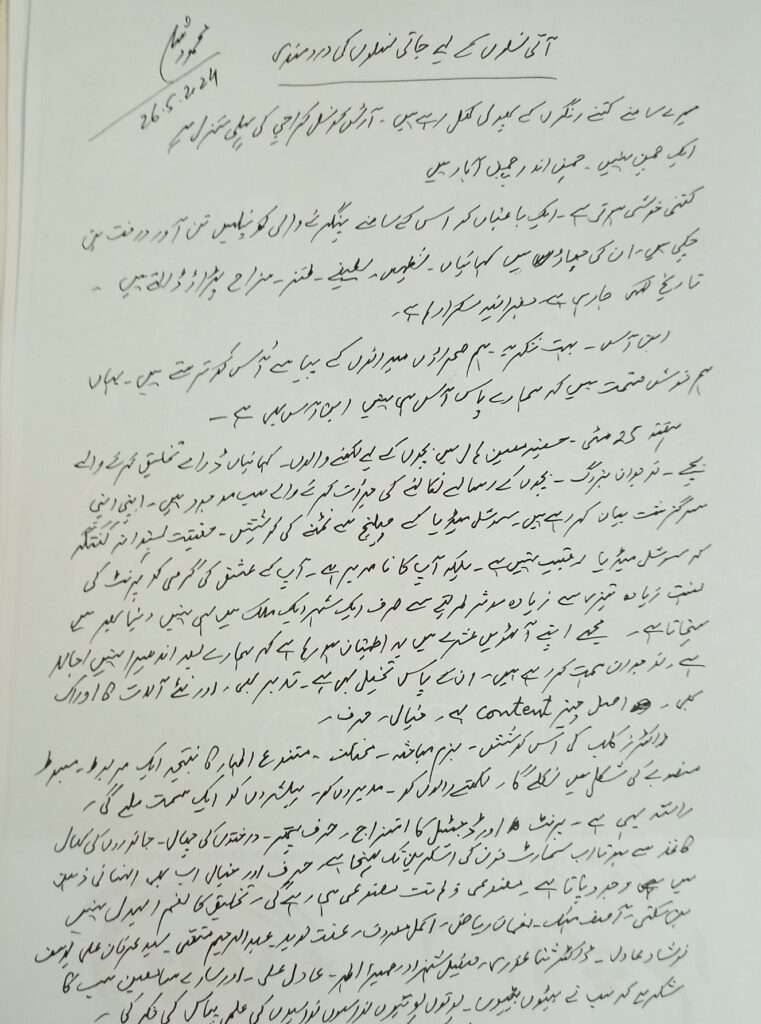 محمود شام
26.5.2024
آتی نسلوں کے لیے جاتی نسلوں کی دردمندی
میرے سامنے کتنے رنگوں کے پھول کھل رہے ہیں۔ آرٹس کونسل کراچی کی پہلی منزل پر
ایک چمن نہیں۔ چمن اندر چمن آباد ہیں
کتنی خوشی ہوتی ہے۔ ایک باغباں کو اس کے سامنے پنیگری والی کونپلیں تن آور درخت بن
چکی ہیں۔ ان کی چھاؤں میں کہانیاں۔ نظمیں۔ لطیفے۔ طنز۔ مزاح پڑاؤ ڈالتے ہیں۔
تاریخ لکھی جا رہی ہے۔ جغرافیہ مسکرا رہا ہے۔
ابن آس۔ بہت شکریہ۔ ہم صحراؤں میدانوں کے پیاسے آس کو ترستے ہیں۔ یہاں
ہم خوش قسمت ہیں کہ ہمارے پاس آس ہی نہیں ابن آس بھی ہے۔
ہفتہ 25 مئی۔ حسینہ معین ہال میں بچوں کے لیے لکھنے والوں۔ کہانیاں ڈرامے تخلیق کرنے والے
بچے۔ نوجوان بزرگ۔ بچوں کے رسالے نکالنے کی جرأت کرنے والے سب موجود ہیں۔ اپنی اپنی
سرگزشت بیان کر رہے ہیں۔ سوشل میڈیا کے چیلنج سے نمٹنے کی کوششیں۔ حقیقت پسندانہ گفتگو
کہ سوشل میڈیا رقیب نہیں ہے۔ بلکہ آپ کا نامہ بر ہے۔ آپ کے عشق کی گرمی کو پرنٹ کی
نسبت زیادہ تیزی سے زیادہ موثر طریقے سے صرف ایک شہر ایک ملک میں ہی نہیں دنیا بھر میں
پہنچاتا ہے۔ مجھے اپنے آٹھویں عشرے میں یہ اطمینان ہو رہا ہے کہ ہمارے بعد اندھیرا نہیں اجالا
ہے۔ نوجوان ہمت کر رہے ہیں۔ ان کے پاس تخیل بھی ہے۔ تدبر بھی۔ اور نئے آلات کا ادراک
بھی۔ اصل چیز content ہے۔ خیال۔ حرف۔
کلب کی اس کوشش۔ بزم مباحثہ۔ محنت۔ متنوع اظہار کا نتیجہ ایک مربوط۔ مبسوط
منصوبے کی شکل میں نکلے گا۔ لکھنے والوں کو۔ مدیروں کو۔ پبلشروں کو ایک سمت ملے گی۔
راستہ یہی ہے۔ پرنٹ اور ڈیجیٹل کا امتزاج۔ حرف پتھر۔ درختوں کی چھال۔ جانوروں کی کھال
کاغذ سے ہوتا اب سمارٹ فون کی اسکرین تک پہنچا ہے۔ حرف اور خیال اب بھی انسانی ذہن
میں ہی وجود پاتا ہے۔ مصنوعی ذہانت مصنوعی ہی رہے گی۔ تخلیق کا نعم البدل نہیں
بن سکتی۔ آصف ملک۔ نعمان ریاض۔ اکمل معروف۔ عبدالرحیم متقی۔ سید عرفان علی یوسف
نوشاد عادل۔ ڈاکٹر ثنا غوری۔ اور سمیرا اطہر۔ عادل علی۔ اور سارے سامعین سب کا
شکریہ کہ سب نے بیٹوں بیٹیوں۔ پوتوں پوتیوں نواسوں نواسیوں کی علمی پیاس کی فکر کی۔